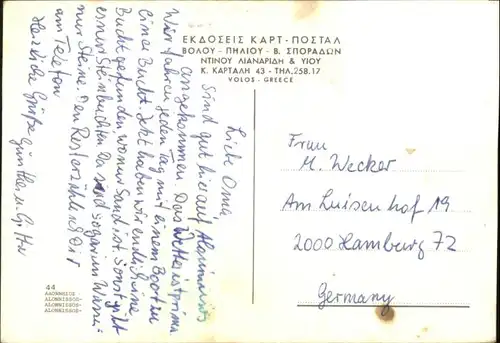 ΕΚΔΟΣΕΙΣ ΚΑΡΤ-ΠΟΣΤΑΛ
ΒΟΛΟΥ - ΠΗΛΙΟΥ - Β. ΣΠΟΡΑΔΩΝ
ΝΤΙΝΟΥ ΛΙΑΝΑΡΙΔΗ & ΥΙΟΥ
Κ. ΚΑΡΤΑΛΗ 43 - ΤΗΛ, 258.17
VOLOS - GREECE
Liebe Oma
Sind gut hier auf Alonnisos
angekommen. Das Wetter ist prima
Wir fahren jeden Tag mit einem Boot zu
einer Bucht. Jetzt haben wir endlich eine
Bucht gefunden wo nur Sand ist. Sonst gibt
es nur Steinbuchten. Da sind sogar im Wasser
nur Steine. Den Rest erzähle ich Dir
am Telefon
Herzliche Grüße Günther u. Gitta
Frau
M. Wecker
Am Luisenhof 19
2000 Hamburg 72
Germany
44
ΑΛΟΝΝΗΣΟΣ -
ALONNISSOS -
ALONNISSOS -
ALONNISSOS -